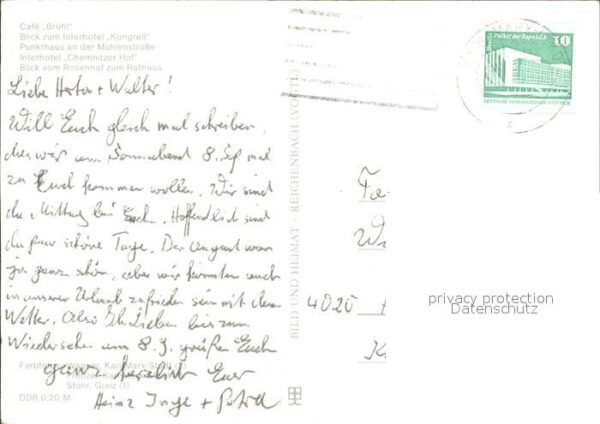 Café „Brühl"
Blick zum Interhotel „Kongreß"
Punkthaus an der Mühlenstraße
Interhotel „Chemnitzer Hof"
Blick vom Rosenhof zum Rathaus
Liebe Herta + Walter!
Will Euch gleich mal schreiben,
das wir am Sonnabend 8. Sep mal
zu Euch kommen wollen. Wir sind
die Mittag bei Euch. Hoffendlich sind
du paar schöne Tage. Der August war
ja ganz schön, aber wir könnten auch
in unserer Urlaub zufrieden sein mit dem
Wetter. Also Ihr Lieben bis zum
Wiedersehen am 8.9. grüßen Euch
ganz herzlich Euer
Heinz Inge + Petra
Karl-Marx-Stadt
Stöhr, Greiz (1)
DDR 0,20 M
BILD UND HEIMAT · REICHENBACH (VOGTL)
Berlin Palast der Republik
10
Fa
W
4020
K
privacy protection
Datenschutz